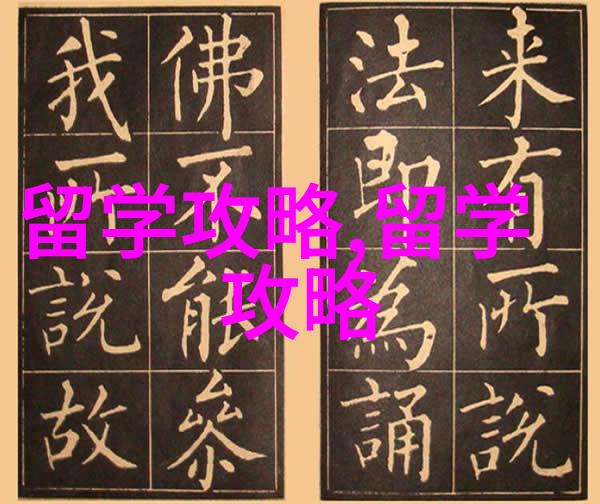 来有所說
法即為誦
佛不能參
我所說故
留学攻略,留学
攻略